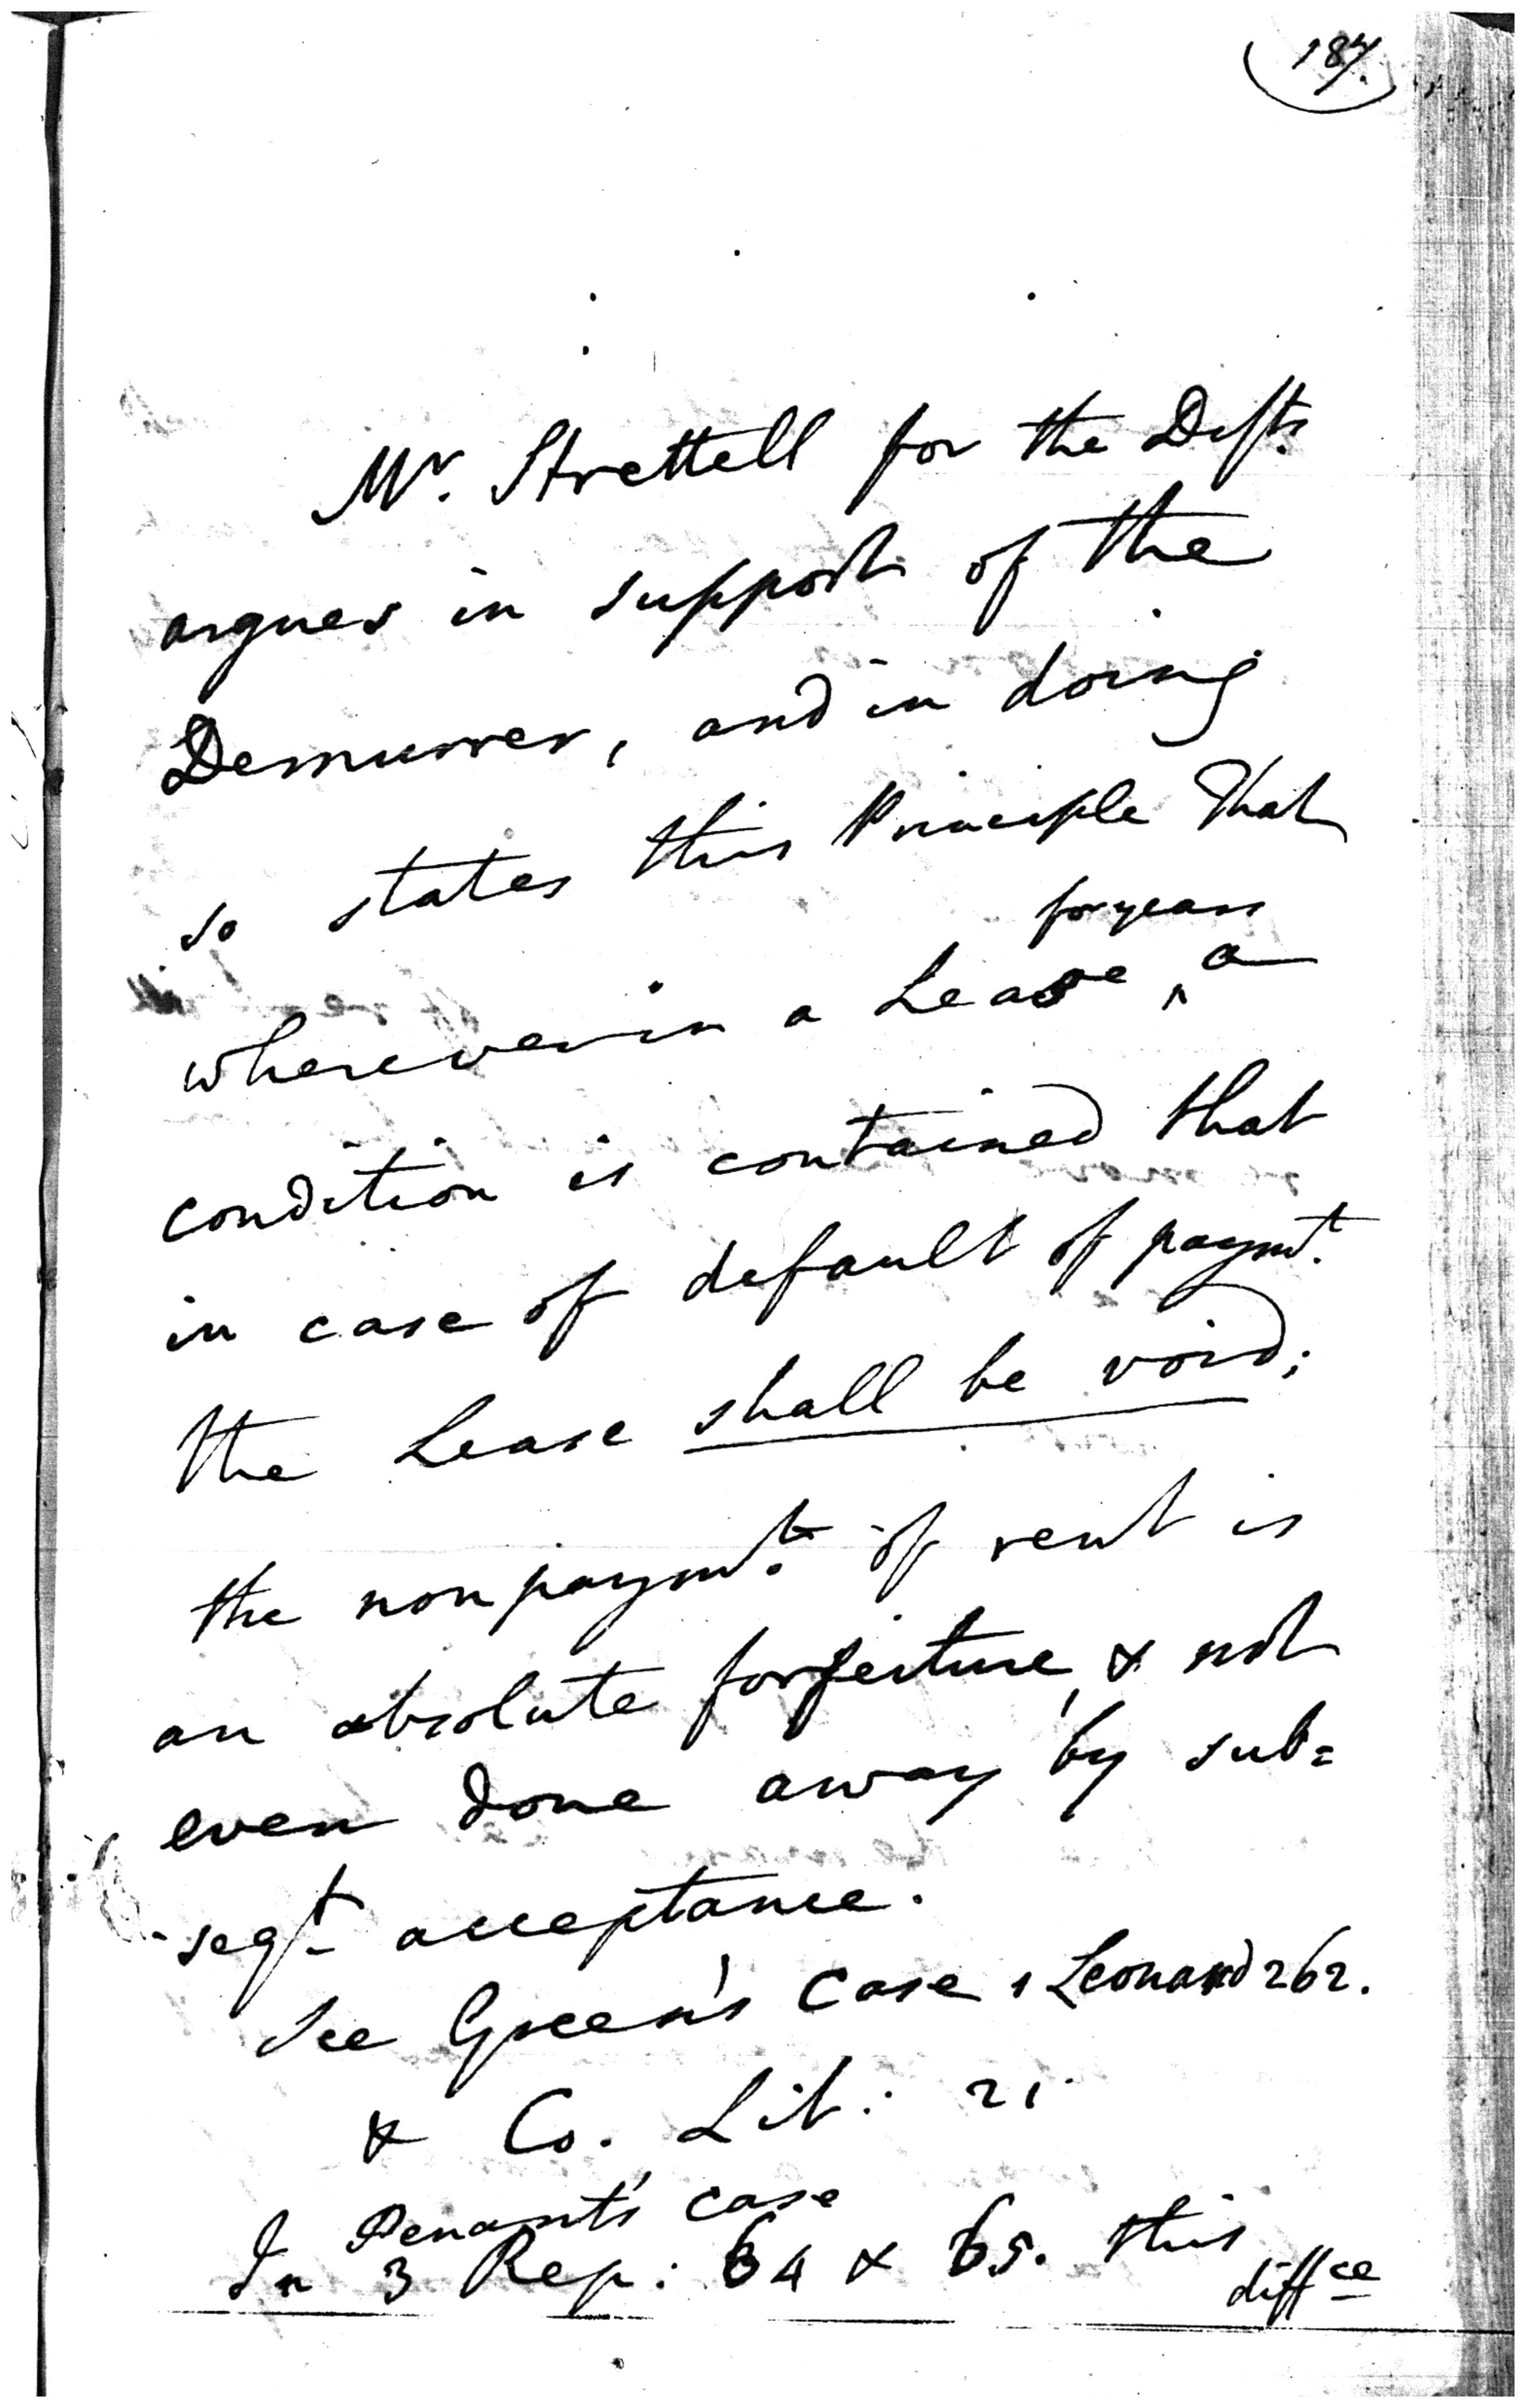 187.
Mr. Strettell for the Defts.
argues in support of the
Demurrer, and in doing
so states this Principle That
for years
wherever in a Lease ^ a
condition is contained that
in case of default of paymt.
the Lease shall be void;
the non paymt. of rent is
an absolute forfeiture, & not
even done away by sub=
-seqt acceptance.
See Green's Case 1 Leonard 262.
& Co. Lit: 21
Penant's case
In 3 Rep: 64 & 65. this
diffce